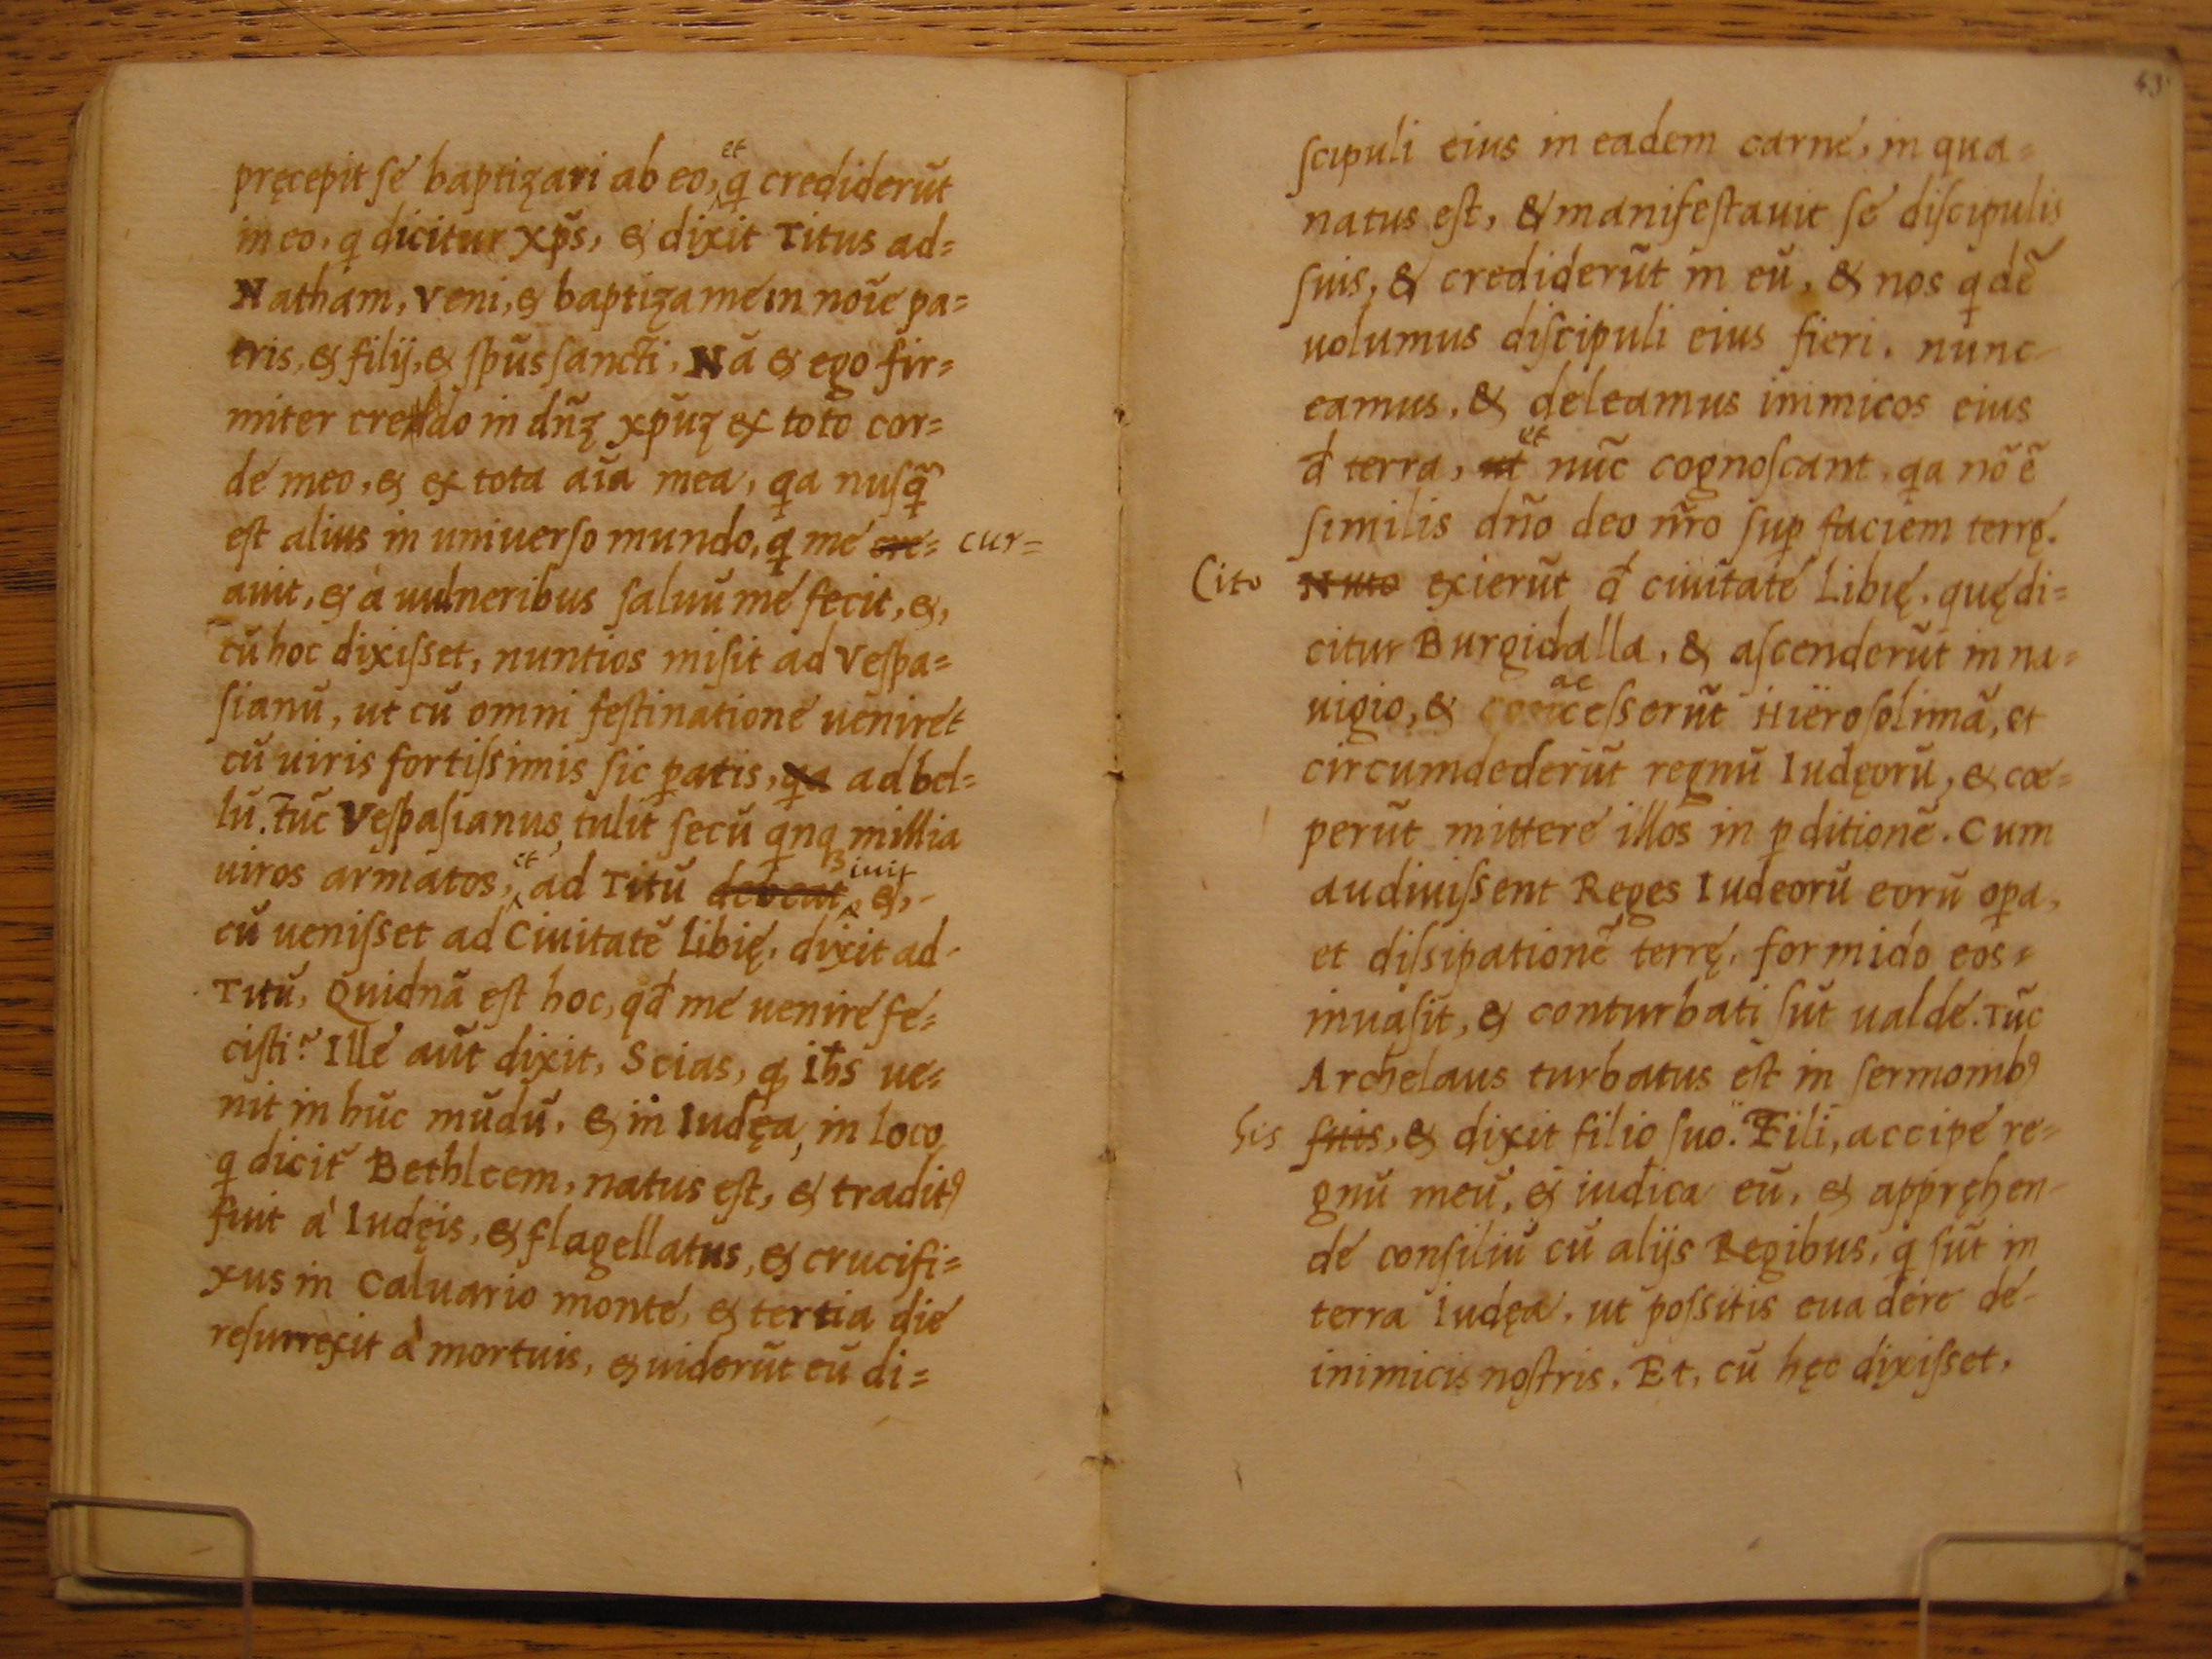 pręcepit se baptizari ab eo, et q crediderũt
in eo, q dicitur xp̃s, & dixit Titus ad=
Natham, veni, & baptiza me in noĩe pa=
tris, & filij, & sp̃us sancti, Nã & ego fir=
miter credo in dñz xp̃uz ex toto cor=
de meo, & ex tota aĩa mea, qa nusq̃
est alius in uniuerso mundo, q me cre= cur=
auit, & à uulneribus saluũ me fecit, &,
cũ hoc dixisset, nuntios misit ad Vespa=
sianũ, ut cũ omni festinatione ueniret
cũ uiris fortissimis sic patis, qa ad bel=
lũ. Tũc Vespasianus tulit secũ qnq millia
uiros armatos, et ad Titũ debeat iuit, &, -
cũ uenisset ad Ciuitatẽ Libię, dixit ad-
Titũ, Quidnã est hoc, qd me uenire fe=
cisti? Ille aũt dixit, Scias, q Ihs ue=
nit in hũc mũdũ, & in Iudęa, in loco
q dicit Bethleem, natus est, & tradit9
fuit à Iudęis, & flagellatus, & crucifi=
xus in Caluario monte, & tertia die
resurrexit à mortuis, & uiderũt eũ di=
43
scipuli eius in eadem carne, in qua=
natus est, & manifestauit se discipulis
suis, & crediderũt in eũ, & nos qdẽ
uolumus discipuli eius fieri. nunc
eamus, & deleamus inimicos eius
đ terra, ut et nũc cognoscant, qa nõ ẽ
similis dño deo nr̃o sup faciem terrę.
Cito Nuto exierũt đ ciuitate Libię, quę di=
citur Burgidalla, & ascenderũt in na=
uigio, & concesserũt ac Hierosolimã, et
circumdederũt regnũ Iudęorũ, & cœ=
perũt mittere illos in pditionẽ. Cum
audiuissent Reges Iudeorũ eorũ opa,
et dissipationẽ terrę, formido eos=
inuasit, & conturbati sũt ualde. Tũc
Archelaus turbatus est in sermonib9
his suis, & dixit filio suo. Fili, accipe re=
gnũ meũ, & iudica eũ, & appręhen-
de consiliũ cũ alijs Regibus, q sũt in
terra Iudęa, ut possitis euadere de-
inimicis nostris. Et, cũ hęc dixisset,